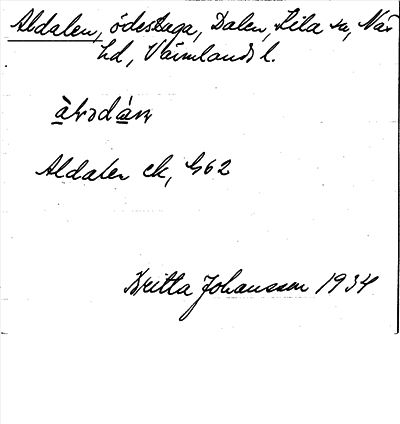 Aldalen, ödestuga, Dalen, Lila sn, När
hd, Värmlands l.
Aldalen ek, G62
Britta Johansson 1934